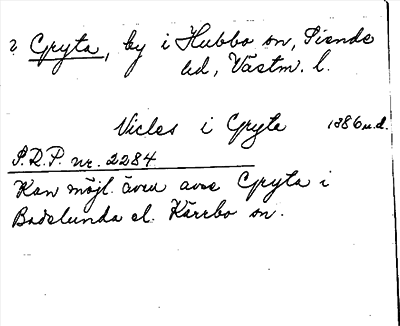 ? Gryta, by i Hubbo sn, Siende
hd, Västm. l.
Vicles i Gryte 1386 u.d.
S.R.P. nr. 2284
Kan möjl. även avse Gryta i
Badelunda el. Kärrbo sn.